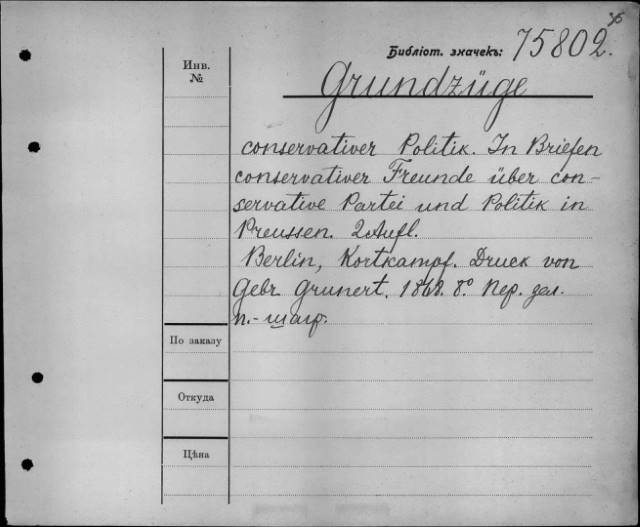 Библіот. значекъ: 75802.
Инв.
№
Grundzüge
conservativer Politik. In Briefen
conservativer Freunde über con-
servative Partei und Politik in
Preussen. 2 Aufl.
Berlin, Kortkampf. Druck von
Gebr Grunert. 1868. 8º Пер. зел.
п.-шагр.
По заказу
Откуда
Цѣна